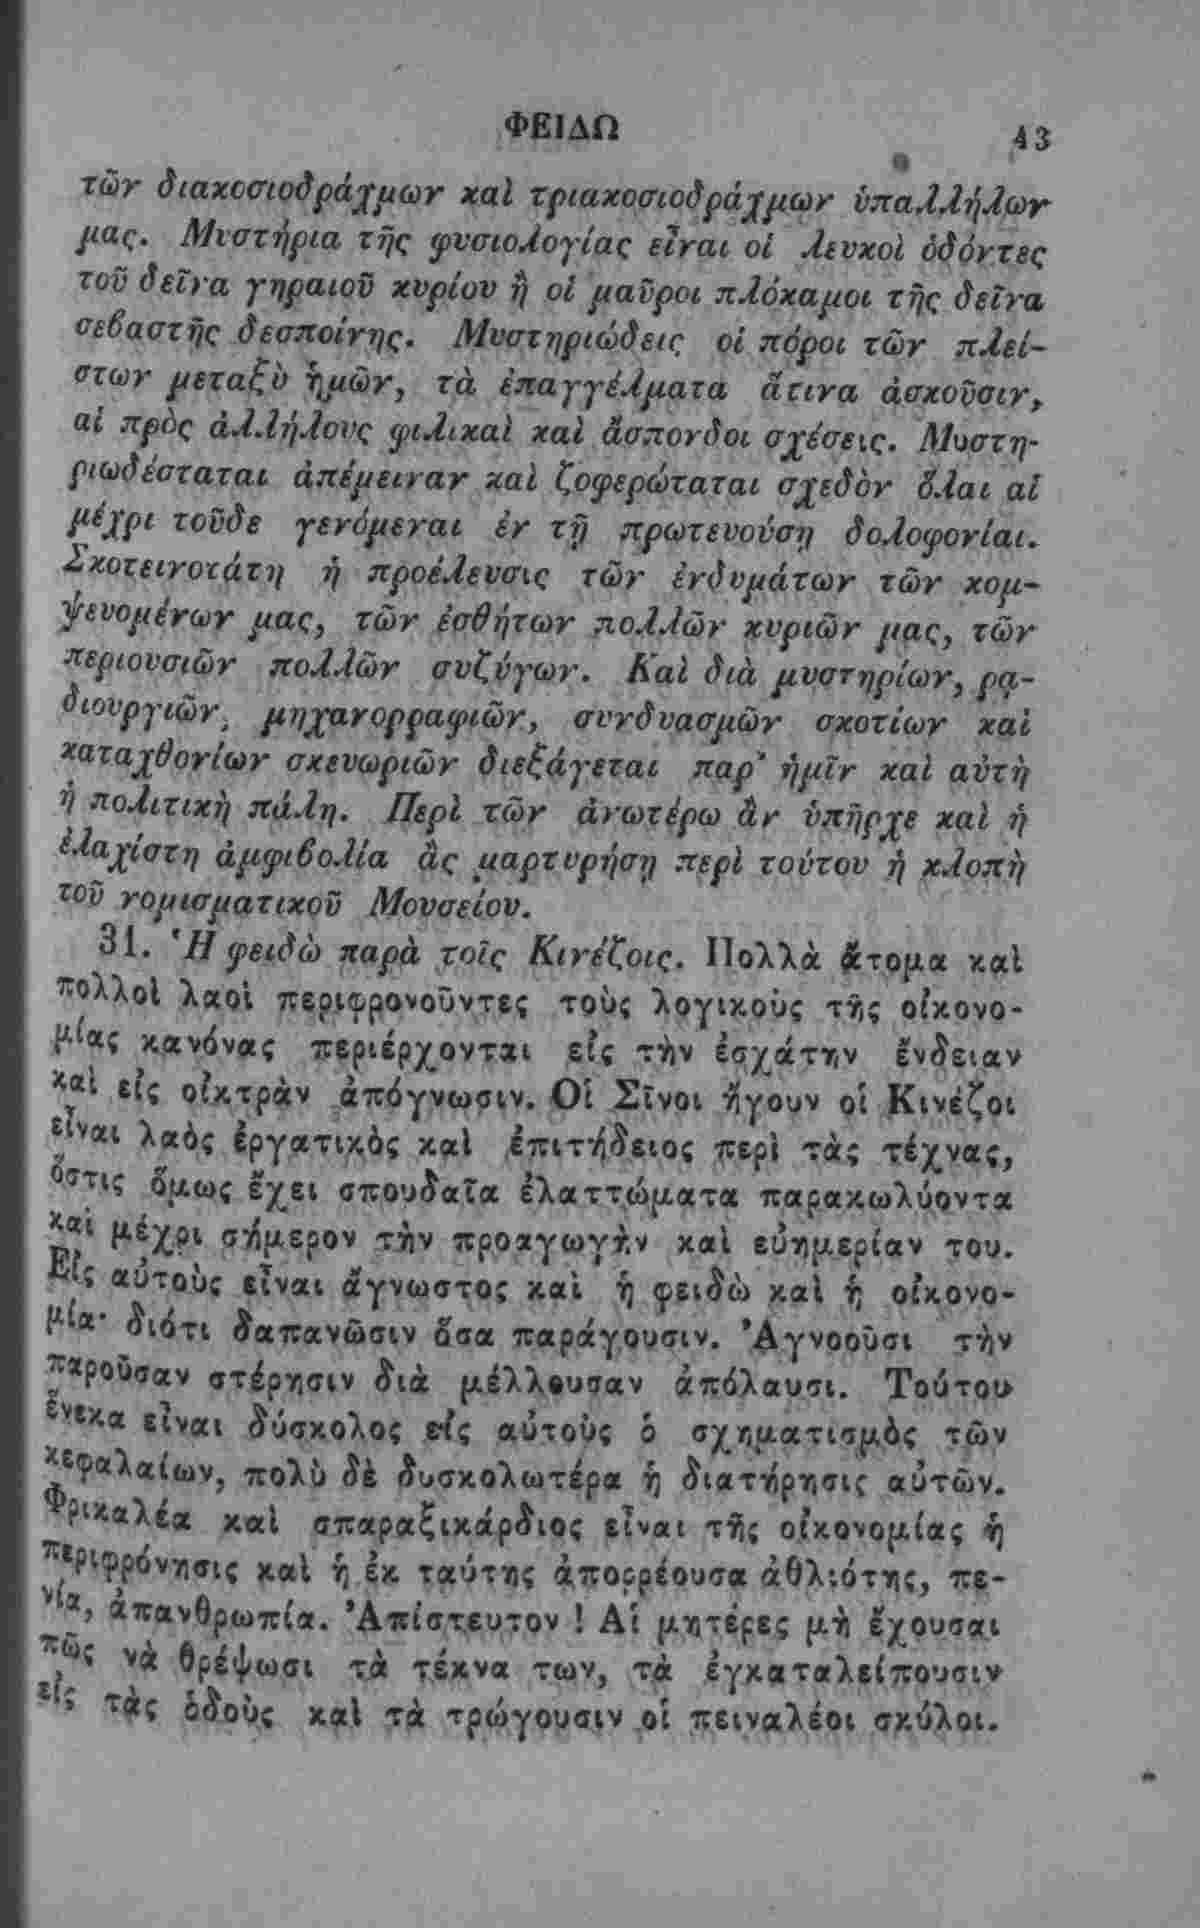 ΦΕΙΔΩ
43
τῶν διακοσιοδράχμων καὶ τριακοσιοδράχμων ὑπαλλήλων
μας. Μυστήρια τῆς φυσιολογίας εἶναι οἱ λευκοὶ ὀδόντες
τοῦ δεῖνα γηραιοῦ κυρίου ἢ οἱ μαῦροι πλόκαμοι τῆς δεῖνα
σεβαστῆς δεσποίνης. Μυστηριώδεις οἱ πόροι τῶν πλεί-
στων μεταξὺ ἡμῶν, τὰ ἐπαγγέλματα ἅτινα ἀσκοῦσιν,
αἱ πρὸς ἀλλήλους φιλικαὶ καὶ ἄσπονδοι σχέσεις. Μυστη-
ριωδέσταται ἀπέμειναν καὶ ζοφερώταται σχεδὸν ὅλαι αἱ
μέχρι τοῦδε γενόμεναι ἐν τῇ πρωτευούσῃ δολοφονίαι.
Σκοτεινοτάτη ἡ προέλευσις τῶν ἐνδυμάτων τῶν κομ-
ψευομένων μας, τῶν ἐσθήτων πολλῶν κυριῶν μας, τῶν
περιουσιῶν πολλῶν συζύγων. Καὶ διὰ μυστηρίων, ρᾳ-
διουργιῶν, μηχανορραφιῶν, συνδυασμῶν σκοτίων καὶ
καταχθονίων σκευωριῶν διεξάγεται παρ' ἡμῖν καὶ αὐτὴ
ἡ πολιτικὴ πάλη. Περὶ τῶν ἀνωτέρω ἂν ὑπῆρχε καὶ ἡ
ἐλαχίστη ἀμφιβολία ἂς μαρτυρήσῃ περὶ τούτου ἡ κλοπὴ
τοῦ νομισματικοῦ Μουσείου.
31. Ἡ φειδὼ παρὰ τοῖς Κινέζοις. Πολλὰ ἄτομα καὶ
πολλοὶ λαοὶ περιφρονοῦντες τοὺς λογικοὺς τῆς οἰκονο-
μίας κανόνας περιέρχονται εἰς τὴν ἐσχάτην ἔνδειαν
καὶ εἰς οἰκτρὰν ἀπόγνωσιν. Οἱ Σῖνοι ἤγουν οἱ Κινέζοι
εἶναι λαὸς ἐργατικὸς καὶ ἐπιτήδειος περὶ τὰς τέχνας,
ὅστις ὅμως ἔχει σπουδαῖα ἐλαττώματα παρακωλύοντα
καὶ μέχρι σήμερον τὴν προαγωγὴν καὶ εὐημερίαν του.
Εἰς αὐτοὺς εἶναι ἄγνωστος καὶ ἡ φειδὼ καὶ ἡ οἰκονο-
μία· διότι δαπανῶσιν ὅσα παράγουσιν. Ἀγνοοῦσι τὴν
παροῦσαν στέρησιν διὰ μέλλουσαν ἀπόλαυσι. Τούτου
ἕνεκα εἶναι δύσκολος εἰς αὐτοὺς ὁ σχηματισμὸς τῶν
κεφαλαίων, πολὺ δὲ δυσκολωτέρα ἡ διατήρησις αὐτῶν.
Φρικαλέα καὶ σπαραξικάρδιος εἶναι τῆς οἰκονομίας ἡ
περιφρόνησις καὶ ἡ ἐκ ταύτης ἀπορρέουσα ἀθλιότης, πε-
νία, ἀπανθρωπία. Ἀπίστευτον ! Αἱ μητέρες μὴ ἔχουσαι
πῶς νὰ θρέψωσι τὰ τέκνα των, τὰ ἐγκαταλείπουσιν
εἰς τὰς ὁδοὺς καὶ τὰ τρώγουσιν οἱ πειναλέοι σκύλοι.